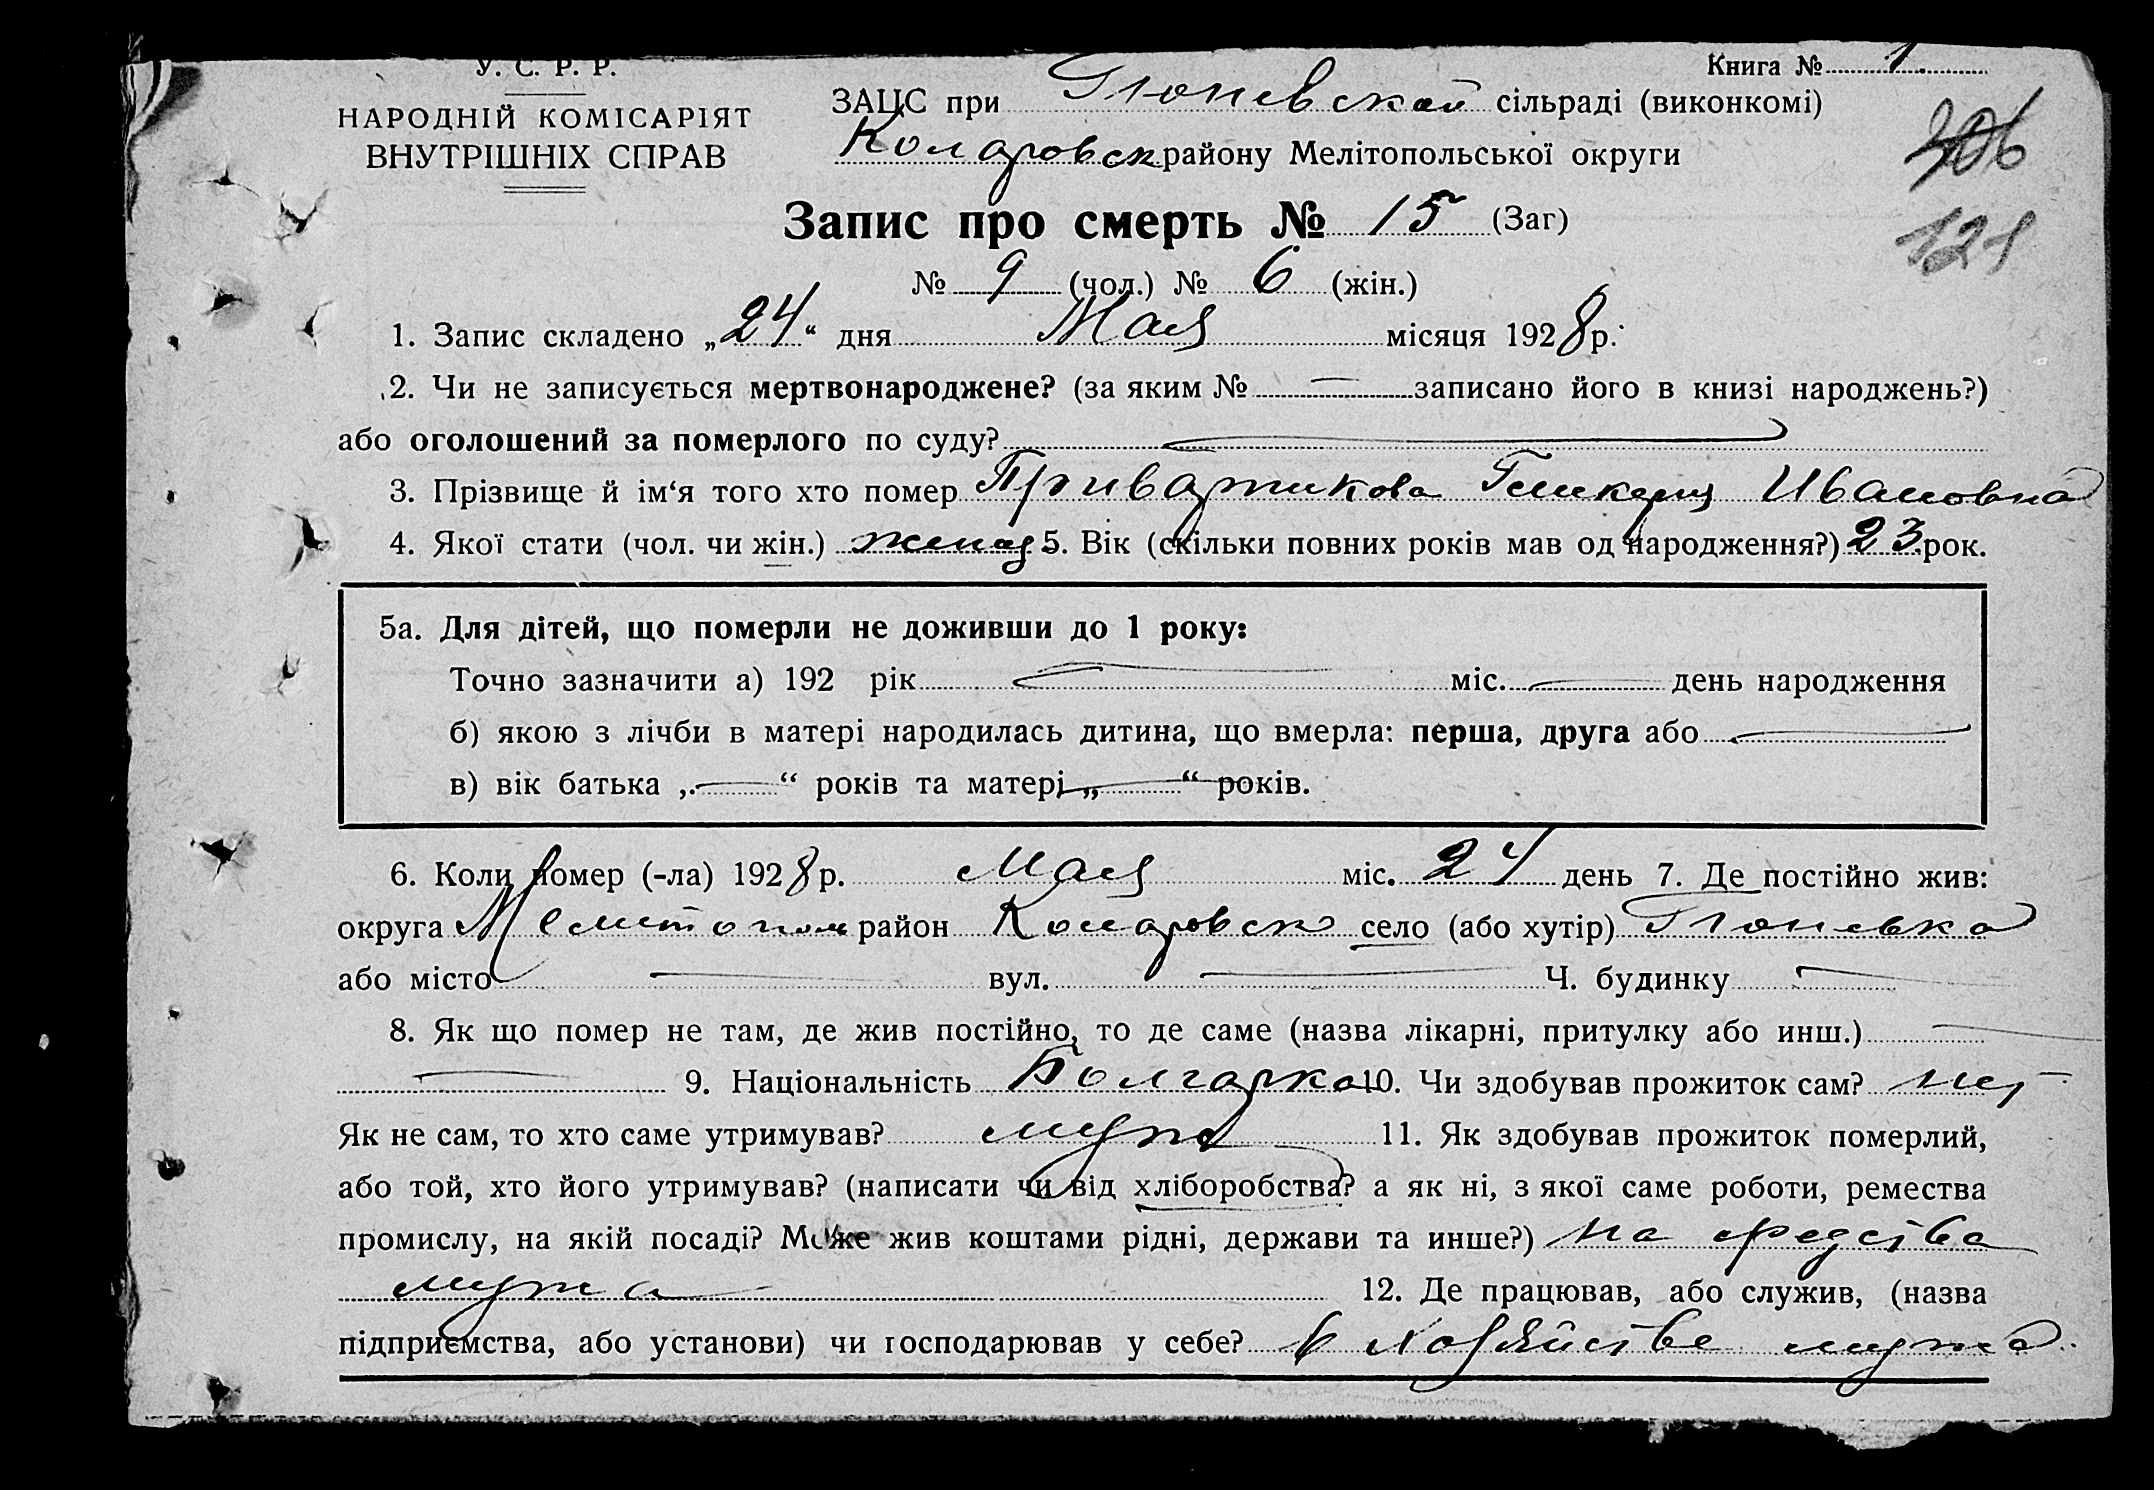 У. С. Р. Р.
НАРОДНІЙ КОМІСАРІЯТ
ВНУТРІШНІХ СПРАВ
Книга № 1
ЗАЦС при Гюневской сільраді (виконкомі)
Коларовск району Мелітопольської округи
206
121
Запис про смерть № 15 (Заг)
№ 9 (чол.) № 6 (жін.)
1. Запис складено „24“ дня Мая місяця 1928 р.
2. Чи не записується мертвонароджене? (за яким № — записано його в книзі народжень?)
або оголошений за померлого по суду? —
3. Прізвище й ім‘я того хто помер Ивановна
4. Якої стати (чол. чи жін.) 5. Вік (скільки повних років мав од народження?) 23 рок.
5а. Для дітей, що померли не доживши до 1 року:
Точно зазначити а) 192 рік — міс. — день народження
б) якою з лічби в матері народилась дитина, що вмерла: перша, друга або —
в) вік батька „—“ років та матері „—“ років.
6. Коли помер (-ла) 1928 р. Мая міс. 24 день 7. Де постійно жив:
округа Мелитопол район Коларовск село (або хутір) Гюневка
або місто — вул. — Ч. будинку —
8. Як що помер не там, де жив постійно, то де саме (назва лікарні, притулку або инш.) —
— 9. Національність Болгарка 10. Чи здобував прожиток сам? нет
Як не сам, то хто саме утримував? муж 11. Як здобував прожиток померлий,
або той, хто його утримував? (написати чи від хліборобства? а як ні, з якої саме роботи, ремества
промислу, на якій посаді? Може жив коштами рідні, держави та инше?) На средства
мужа 12. Де працював, або служив, (назва
підприємства, або установи) чи господарював у себе? в хозяйстве мужа